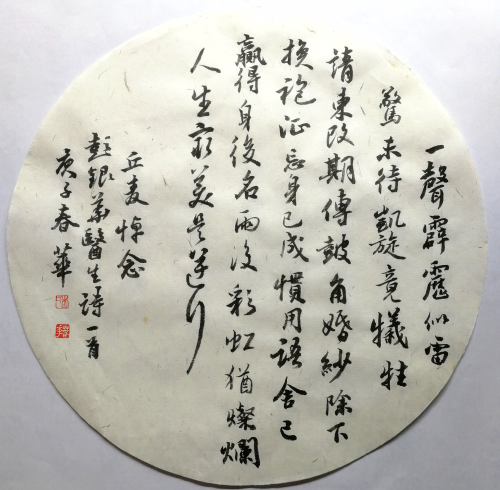 一聲霹靂似雷
驚未待凱旋竟犧牲
請柬改期傳鼓角婚紗除下
換袍征忘身已成慣用語舍己
贏得身後名雨後彩虹猶燦爛
人生最美是逆行
丘麦悼念
彭銀華醫生詩一首
庚子春華